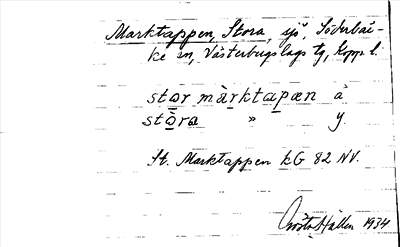 Marktappen, Stora, sjö, Söderbär-
ke sn, Västerbergslags tg, Kopp l.
stor màrktapæn å
stòra " y.
St. Marktappen kG 82 NV.
Gösta Hallén 1934